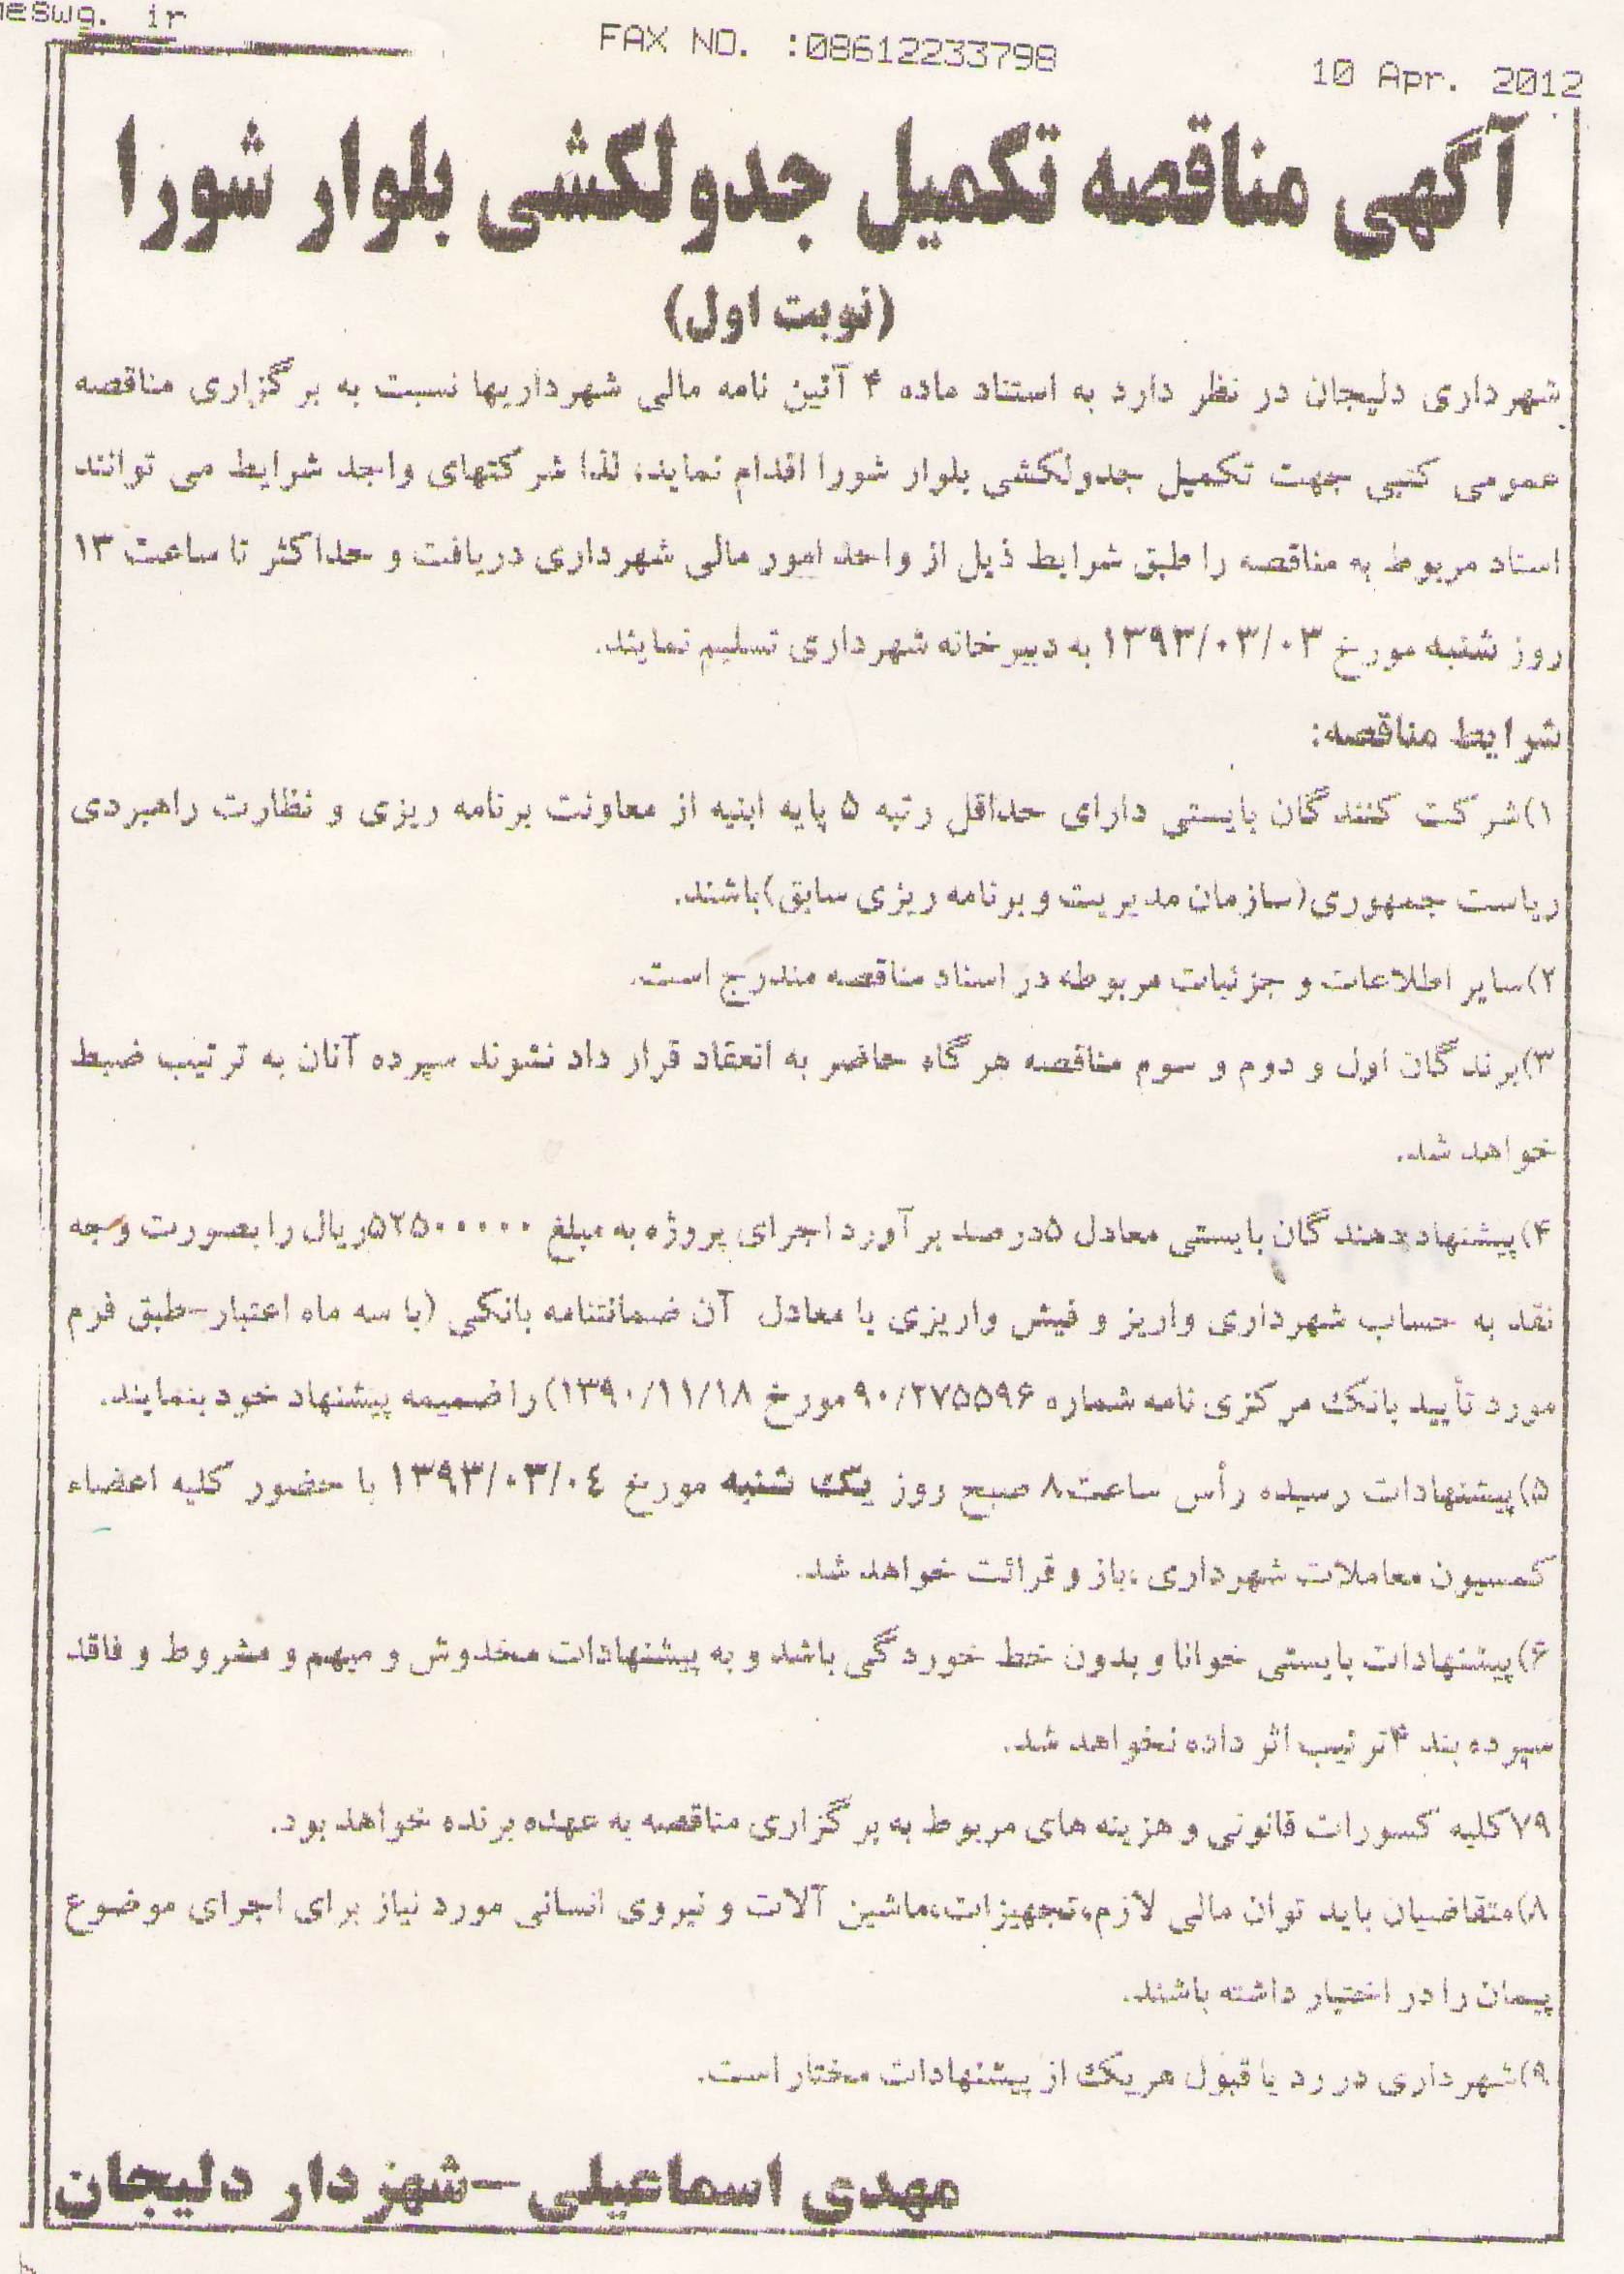 eswg. ir
FAX NO. :08612233798
10 Apr. 2012
آگهی مناقصه تکمیل جدولکشی بلوار شورا
(نوبت اول)
شهرداری دلیجان در نظر دارد به استناد ماده ۴ آئین نامه مالی شهرداریها نسبت به برگزاری مناقصه
عمومی کتبی جهت تکمیل جدولکشی بلوار شورا اقدام نماید، لذا شرکتهای واجد شرایط می توانند
اسناد مربوط به مناقصه را طبق شرایط ذیل از واحد امور مالی شهرداری دریافت و حداکثر تا ساعت ۱۳
روز شنبه مورخ ۱۳۹۳/۰۳/۰۳ به دبیرخانه شهرداری تسلیم نمایند.
شرایط مناقصه:
۱)شرکت کنندگان بایستی دارای حداقل رتبه ۵ پایه ابنیه از معاونت برنامه ریزی و نظارت راهبردی
ریاست جمهوری(سازمان مدیریت و برنامه ریزی سابق)باشند.
۲)سایر اطلاعات و جزئیات مربوطه در اسناد مناقصه مندرج است.
۳)برندگان اول و دوم و سوم مناقصه هرگاه حاضر به انعقاد قرار داد نشوند سپرده آنان به ترتیب ضبط
خواهد شد.
۴)پیشنهاد دهندگان بایستی معادل ۵درصد برآورد اجرای پروژه به مبلغ ۵۲۵۰۰۰۰۰ریال را بصورت وجه
نقد به حساب شهرداری واریز و فیش واریزی یا معادل آن ضمانتنامه بانکی (با سه ماه اعتبار-طبق فرم
مورد تأیید بانک مرکزی نامه شماره ۹۰/۲۷۵۵۹۶ مورخ ۱۳۹۰/۱۱/۱۸) را ضمیمه پیشنهاد خود بنمایند.
۵)پیشنهادات رسیده رأس ساعت۸ صبح روز یک شنبه مورخ ۱۳۹۳/۰۳/۰۴ با حضور کلیه اعضاء
کمسیون معاملات شهرداری ،باز و قرائت خواهد شد.
۶)پیشنهادات بایستی خوانا و بدون خط خوردگی باشد و به پیشنهادات مخدوش و مبهم و مشروط و فاقد
سپرده بند ۴ترتیب اثر داده نخواهد شد.
۷۹کلیه کسورات قانونی و هزینه های مربوط به برگزاری مناقصه به عهده برنده خواهد بود.
۸)متقاضیان باید توان مالی لازم،تجهیزات،ماشین آلات و نیروی انسانی مورد نیاز برای اجرای موضوع
پیمان را در اختیار داشته باشند.
۹)شهرداری در رد یا قبول هریک از پیشنهادات مختار است.
مهدی اسماعیلی-شهردار دلیجان